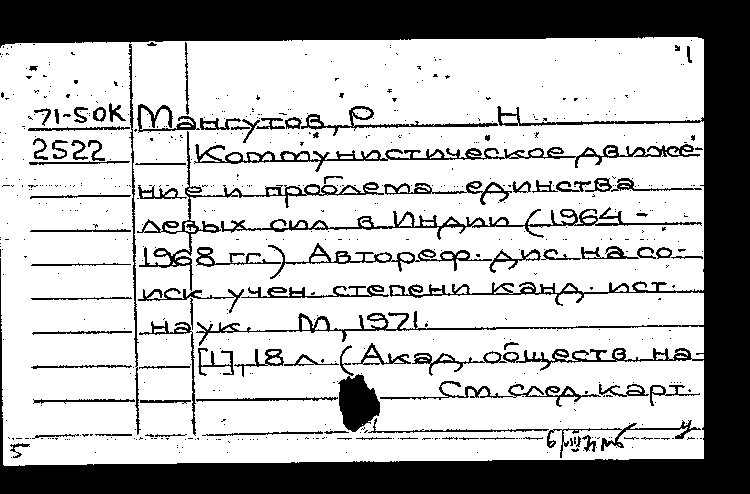 1
71-50К Мангутов, Р Н
2522 Коммунистическое движе-
ние и проблема единства
левых сил в Индии (1964 -
1968 гг.) Автореф. дис. на со-
иск. учен. степени канд. ист.
наук. М., 1971.
[1], 18 л. (Акад. обществ. на-
См. след. карт.
5